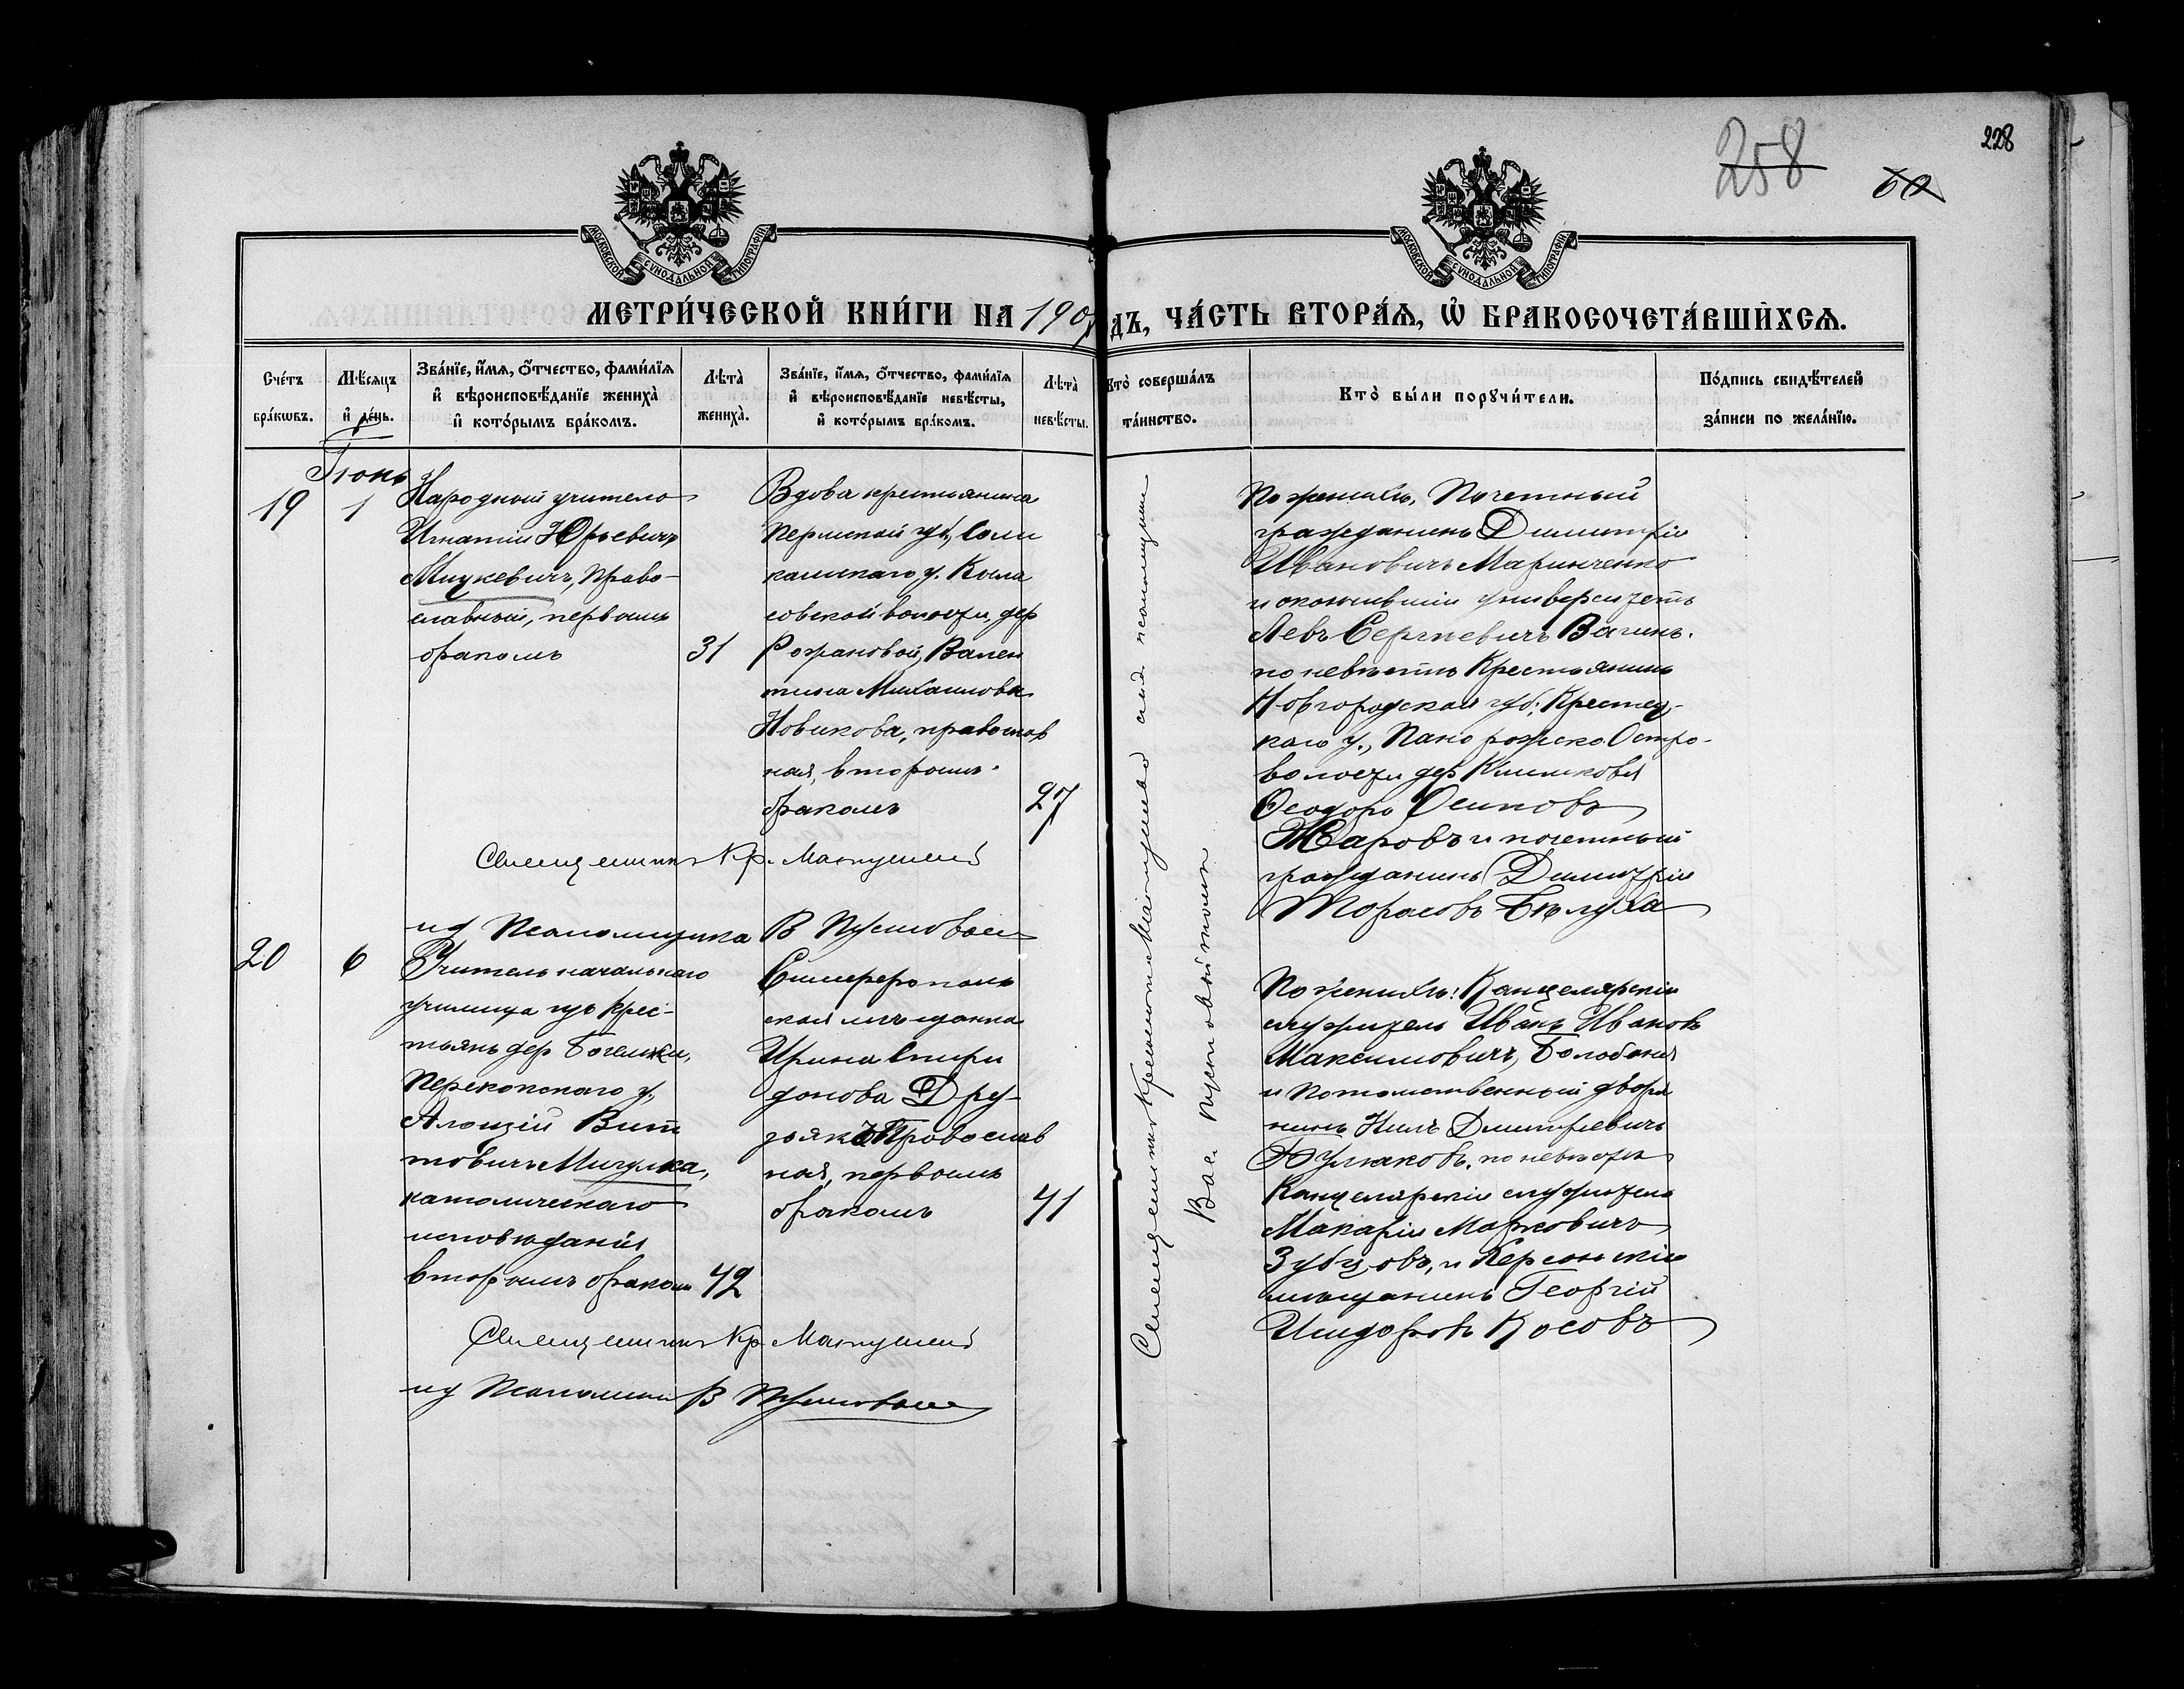 258
60
228
МОСКОВСКОЙ СУНОДАЛЬНОЙ ТИПОГРАФІИ
МОСКОВСКОЙ СУНОДАЛЬНОЙ ТИПОГРАФІИ
МЕТРИ́ЧЕСКОЙ КНИ́ГИ НА 1907 ДЪ, ЧА́СТЬ ВТОРА́Я, Ѡ҆ БРАКОСОЧЕТА́ВШИХСЯ.
Сче́тъ бра́кѡвъ.
Мѣ́сяцъ и҆ де́нь.
Зва́нїе, и҆́мѧ, ѻ҆́тчество, фами́лїѧ и҆ вѣроисповѣ́данїе жениха̀ и҆ кото́рымъ бра́комъ.
Лѣта̀ жениха̀.
Зва́нїе, и҆́мѧ, ѻ҆́тчество, фами́лїѧ и҆ вѣроисповѣ́данїе невѣ́сты, и҆ кото́рымъ бра́комъ.
Лѣта̀ невѣ́сты.
Кто̀ соверша́лъ та́инство.
Кто̀ бы́ли порꙋчи́тели.
По́дпись свидѣ́телей за́писи по жела́нїю.
Іюнь
19
1
Народный учитель
Игнатій Юрьевичъ
Мицкевичъ, право-
славный, первымъ
бракомъ
31
Вдова крестьянина
Пермской губ., Соли
камскаго у. Косла
совской волости, дер
Рожановой, Вален
тина Михаилова
Новикова, православ
ная, вторымъ
бракомъ
27
Священникъ Кр. Матушевъ
ид Псаломщика В Пустовой
Священникъ Хрисанфъ Матушевъ ид псаломщика
Вас. Пустовойтовъ
По женихѣ, Почетный
гражданинъ Димитрій
Ивановичъ Маринченко
и окончившій университетъ
Левъ Сергѣевичъ Вагинъ.
по невѣстѣ Крестьянинъ
Новгородской губ; Крестец-
каго у., Пано рожско Остро-
волости дер Климкова
Ѳеодоръ Осиповъ
Жаровъ и почетный
гражданинъ Димитрій
Тарасовъ Бѣлуха
20
6
Учитель начальнаго
училища изъ крес-
тьянъ дер Богемки,
Перекопскаго у,
Алоизій Вит
товичъ Мигулка,
католическаго
исповѣданія
вторымъ бракомъ
42
Симферополь
ская мѣщанка
Ирина Спири
донова Дру-
зьякъ Православ
ная, первымъ
бракомъ
41
По женихѣ: Канцелярскій
служитель Иванъ Ивановъ
Максимовичъ, Балабаня
и Потомственный дворя
нинъ Нилъ Дмитріевичъ
Булгаковъ. по невѣстѣ
Канцелярскій служитель
Макарій Марковичъ
Зубцовъ, и Херсонскій
мѣщанинъ Георгій
Исидоровъ Косовъ
Священникъ Кр. Матушевъ
ид Псаломщ В Пустовой